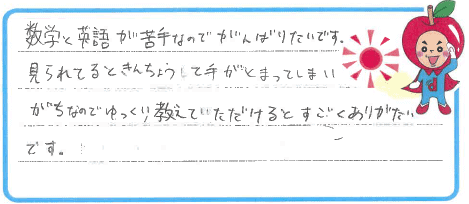 数学と英語が苦手なのでがんばりたいです。
見られてるときんちょうして手がとまってしまい
がちなのでゆっくり教えていただけるとすごくありがたい
です。